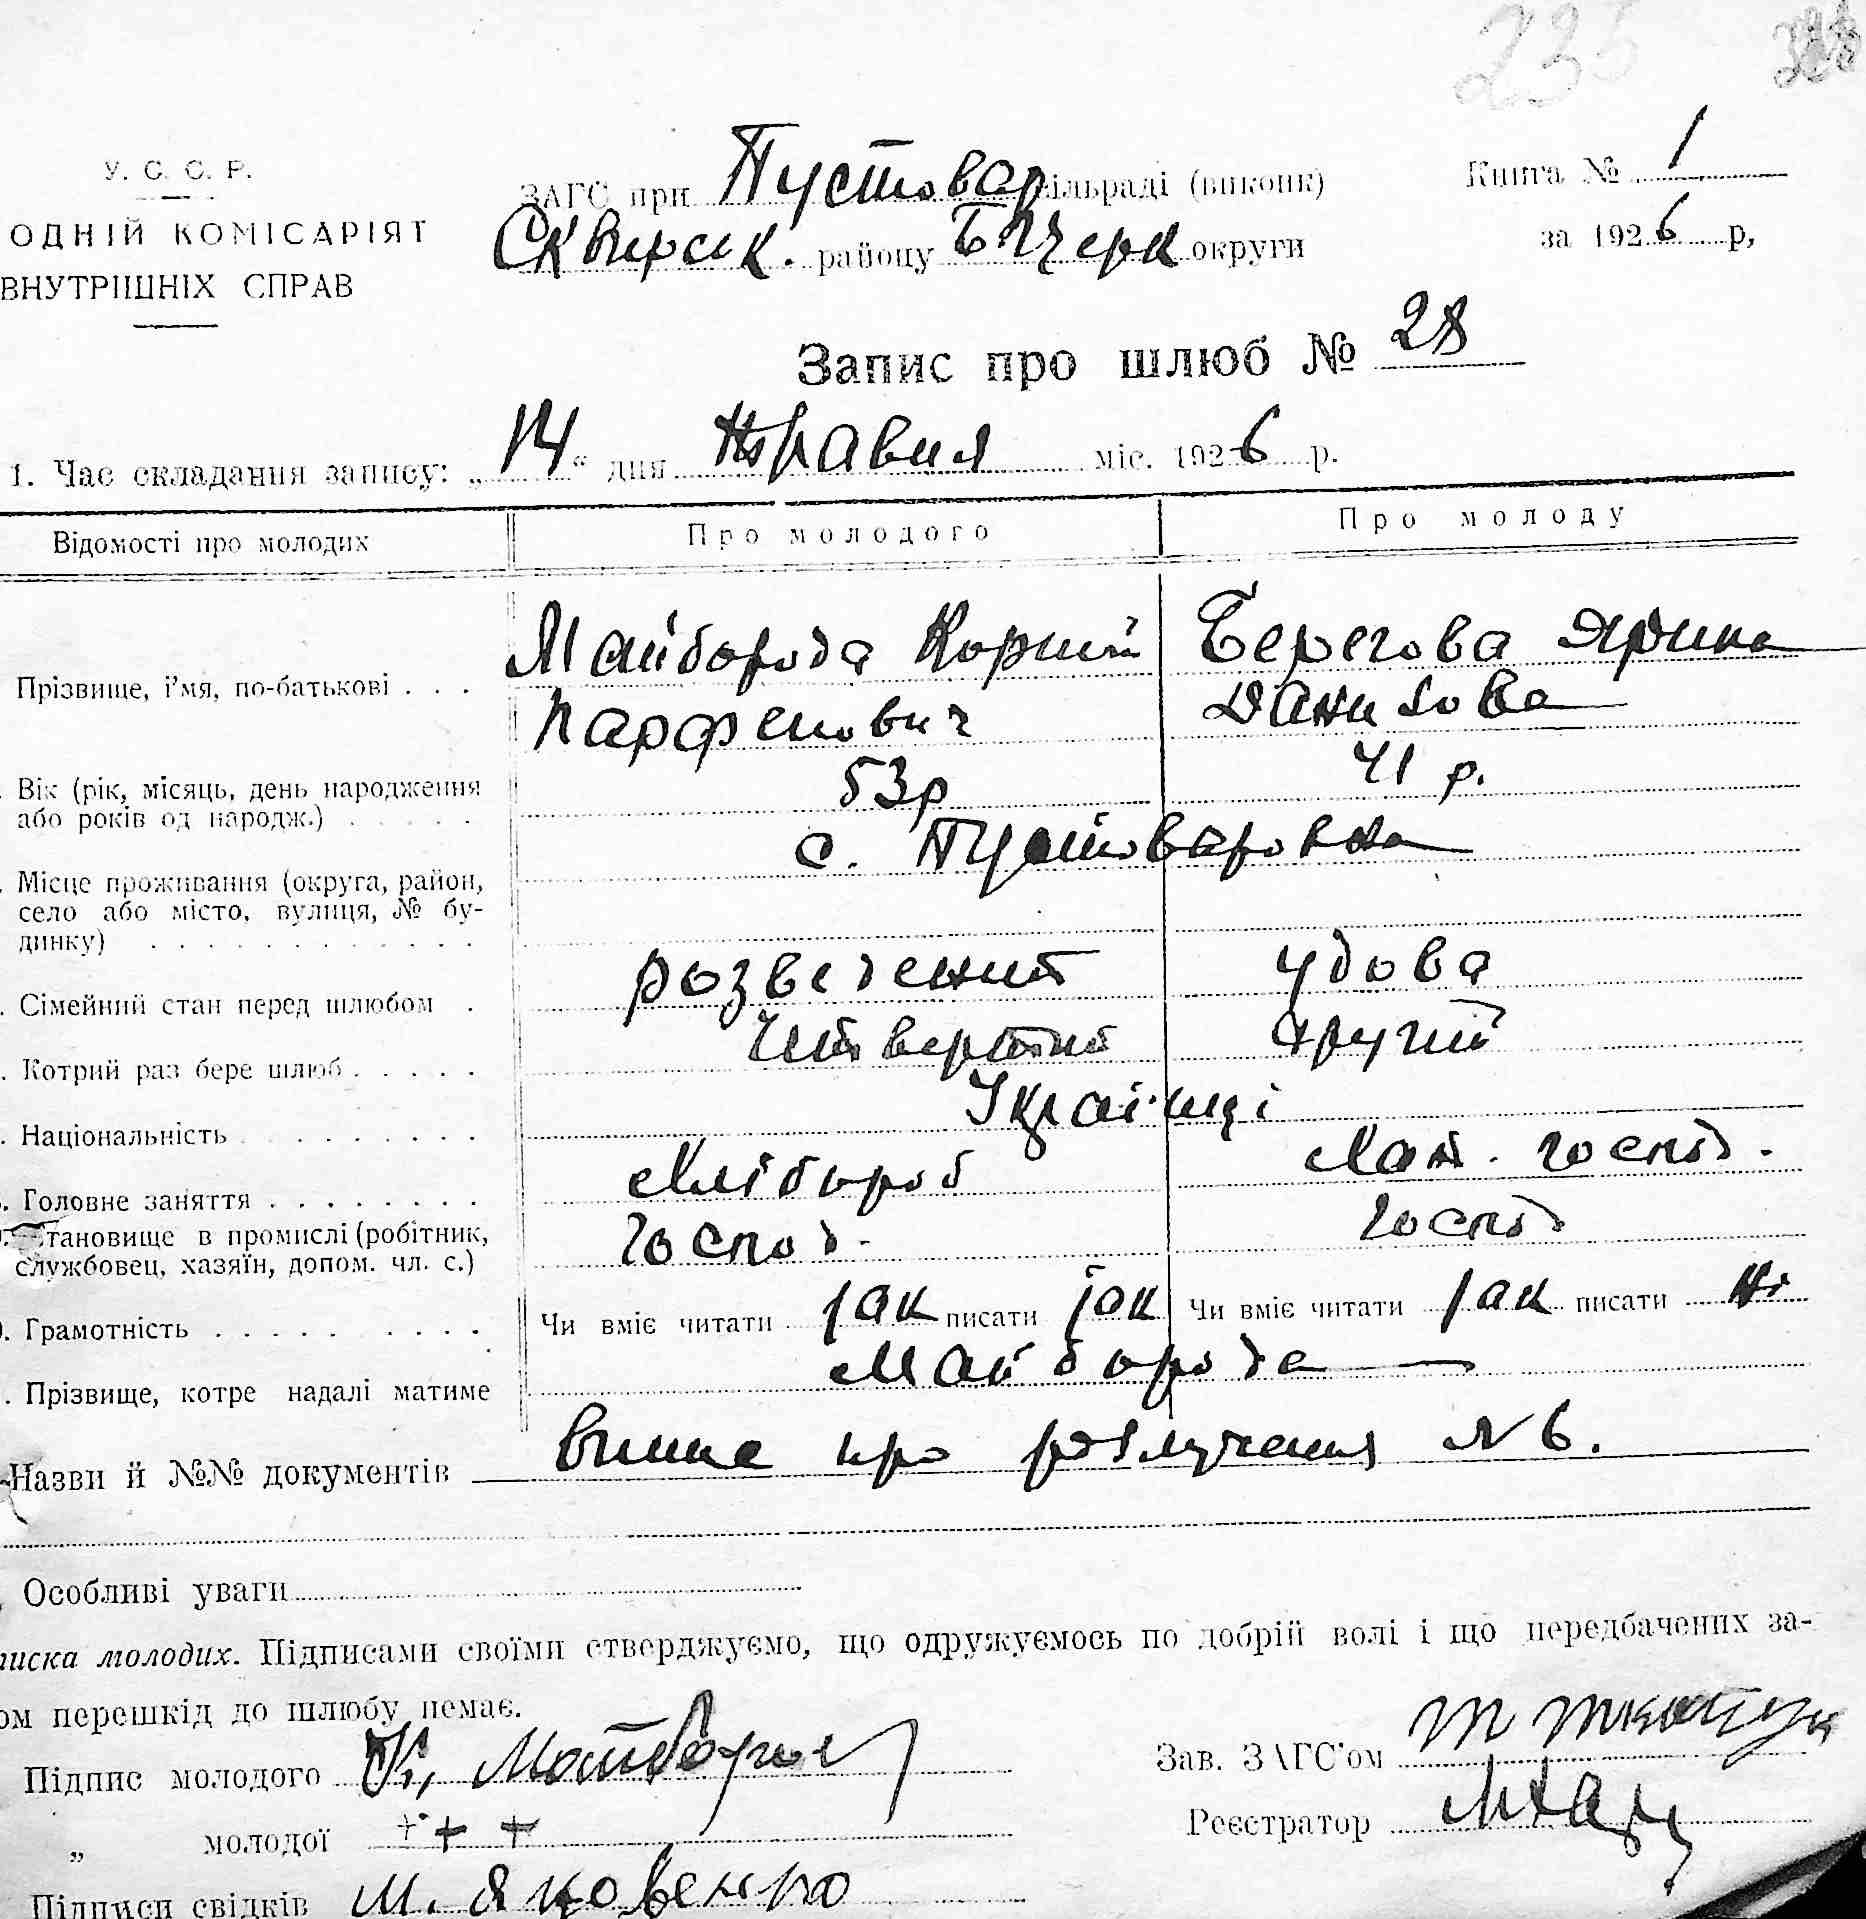 235
У. С. С. Р.
ОДНІЙ КОМІСАРІЯТ
ВНУТРІШНІХ СПРАВ
ЗАГС при Пустовар сільраді (виконк)
Сквирськ. району Б Церк округи
Книга № 1
за 1926 р,
Запис про шлюб № 28
1. Час складання запису: „14“ дня травня міс. 1926 р.
Відомості про молодих Про молодого Про молоду
Прізвище, і'мя, по-батькові . . . Майборода Корній Парфенович Берегова Ярина Данилова
Вік (рік, місяць, день народження або років од народж.) . . . . . 53р 41 р.
Місце проживання (округа, район, село або місто, вулиця, № будинку) . . . . . . . . . . . . с. Пустоваровка
Сімейний стан перед шлюбом . розведений удова
Котрий раз бере шлюб . . . . . Четвертий другий
Національність . . . . . . . . . Українці
Головне заняття . . . . . . . . Хлібороб Хат. господ.
Становище в промислі (робітник, службовец, хазяїн, допом. чл. с.) господ. господ
Грамотність . . . . . . . . . . Чи вміє читати так писати так Чи вміє читати так писати ні
Прізвище, котре надалі матиме Майборода
Назви й №№ документів про розлучення № 6.
Особливі уваги
писка молодих. Підписами своїми стверджуємо, що одружуємось по добрій волі і що передбачених за-
ом перешкід до шлюбу немає.
Підпис молодого К. Майборода
„ молодої + + +
Підписи свідків М. Яковенко
Зав. ЗАГС'ом
Реєстратор